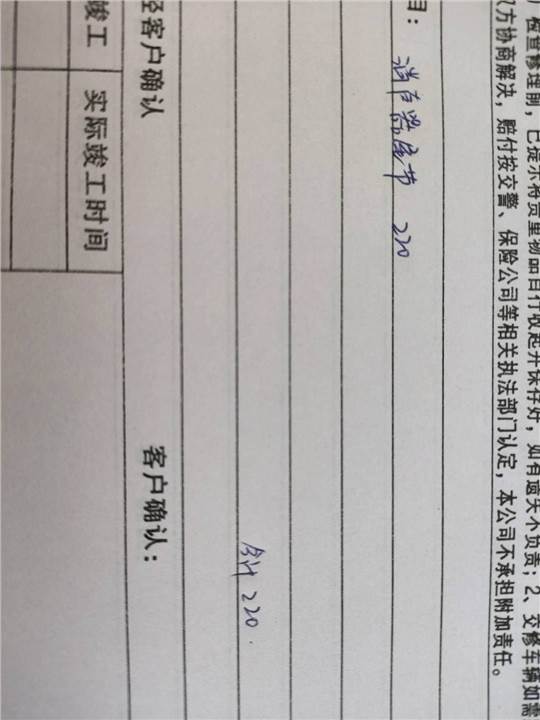 检查修理前，已提示将贵重物品自行收起并保存好，如有遗失不负责；2、交修车辆如需
双方协商解决，赔付按交警、保险公司等相关执法部门认定，本公司不承担附加责任。
目：
消声器尾节 220
合计 220.
经客户确认 客户确认：
竣工 实际竣工时间